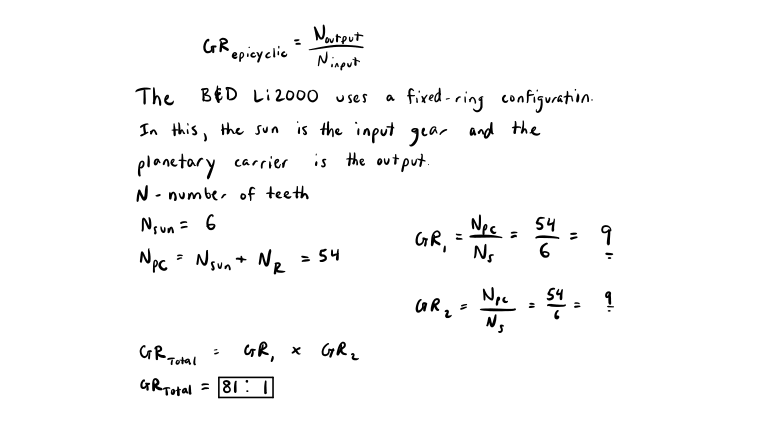 GR epicyclic = N output / N input
The B&D Li2000 uses a fixed-ring configuration.
In this, the sun is the input gear and the
planetary carrier is the output.
N - number of teeth
N sun = 6
N PC = N sun + N R = 54
GR 1 = N PC / N S = 54 / 6 = 9
GR 2 = N PC / N S = 54 / 6 = 9
GR Total = GR 1 × GR 2
GR Total = 81 : 1